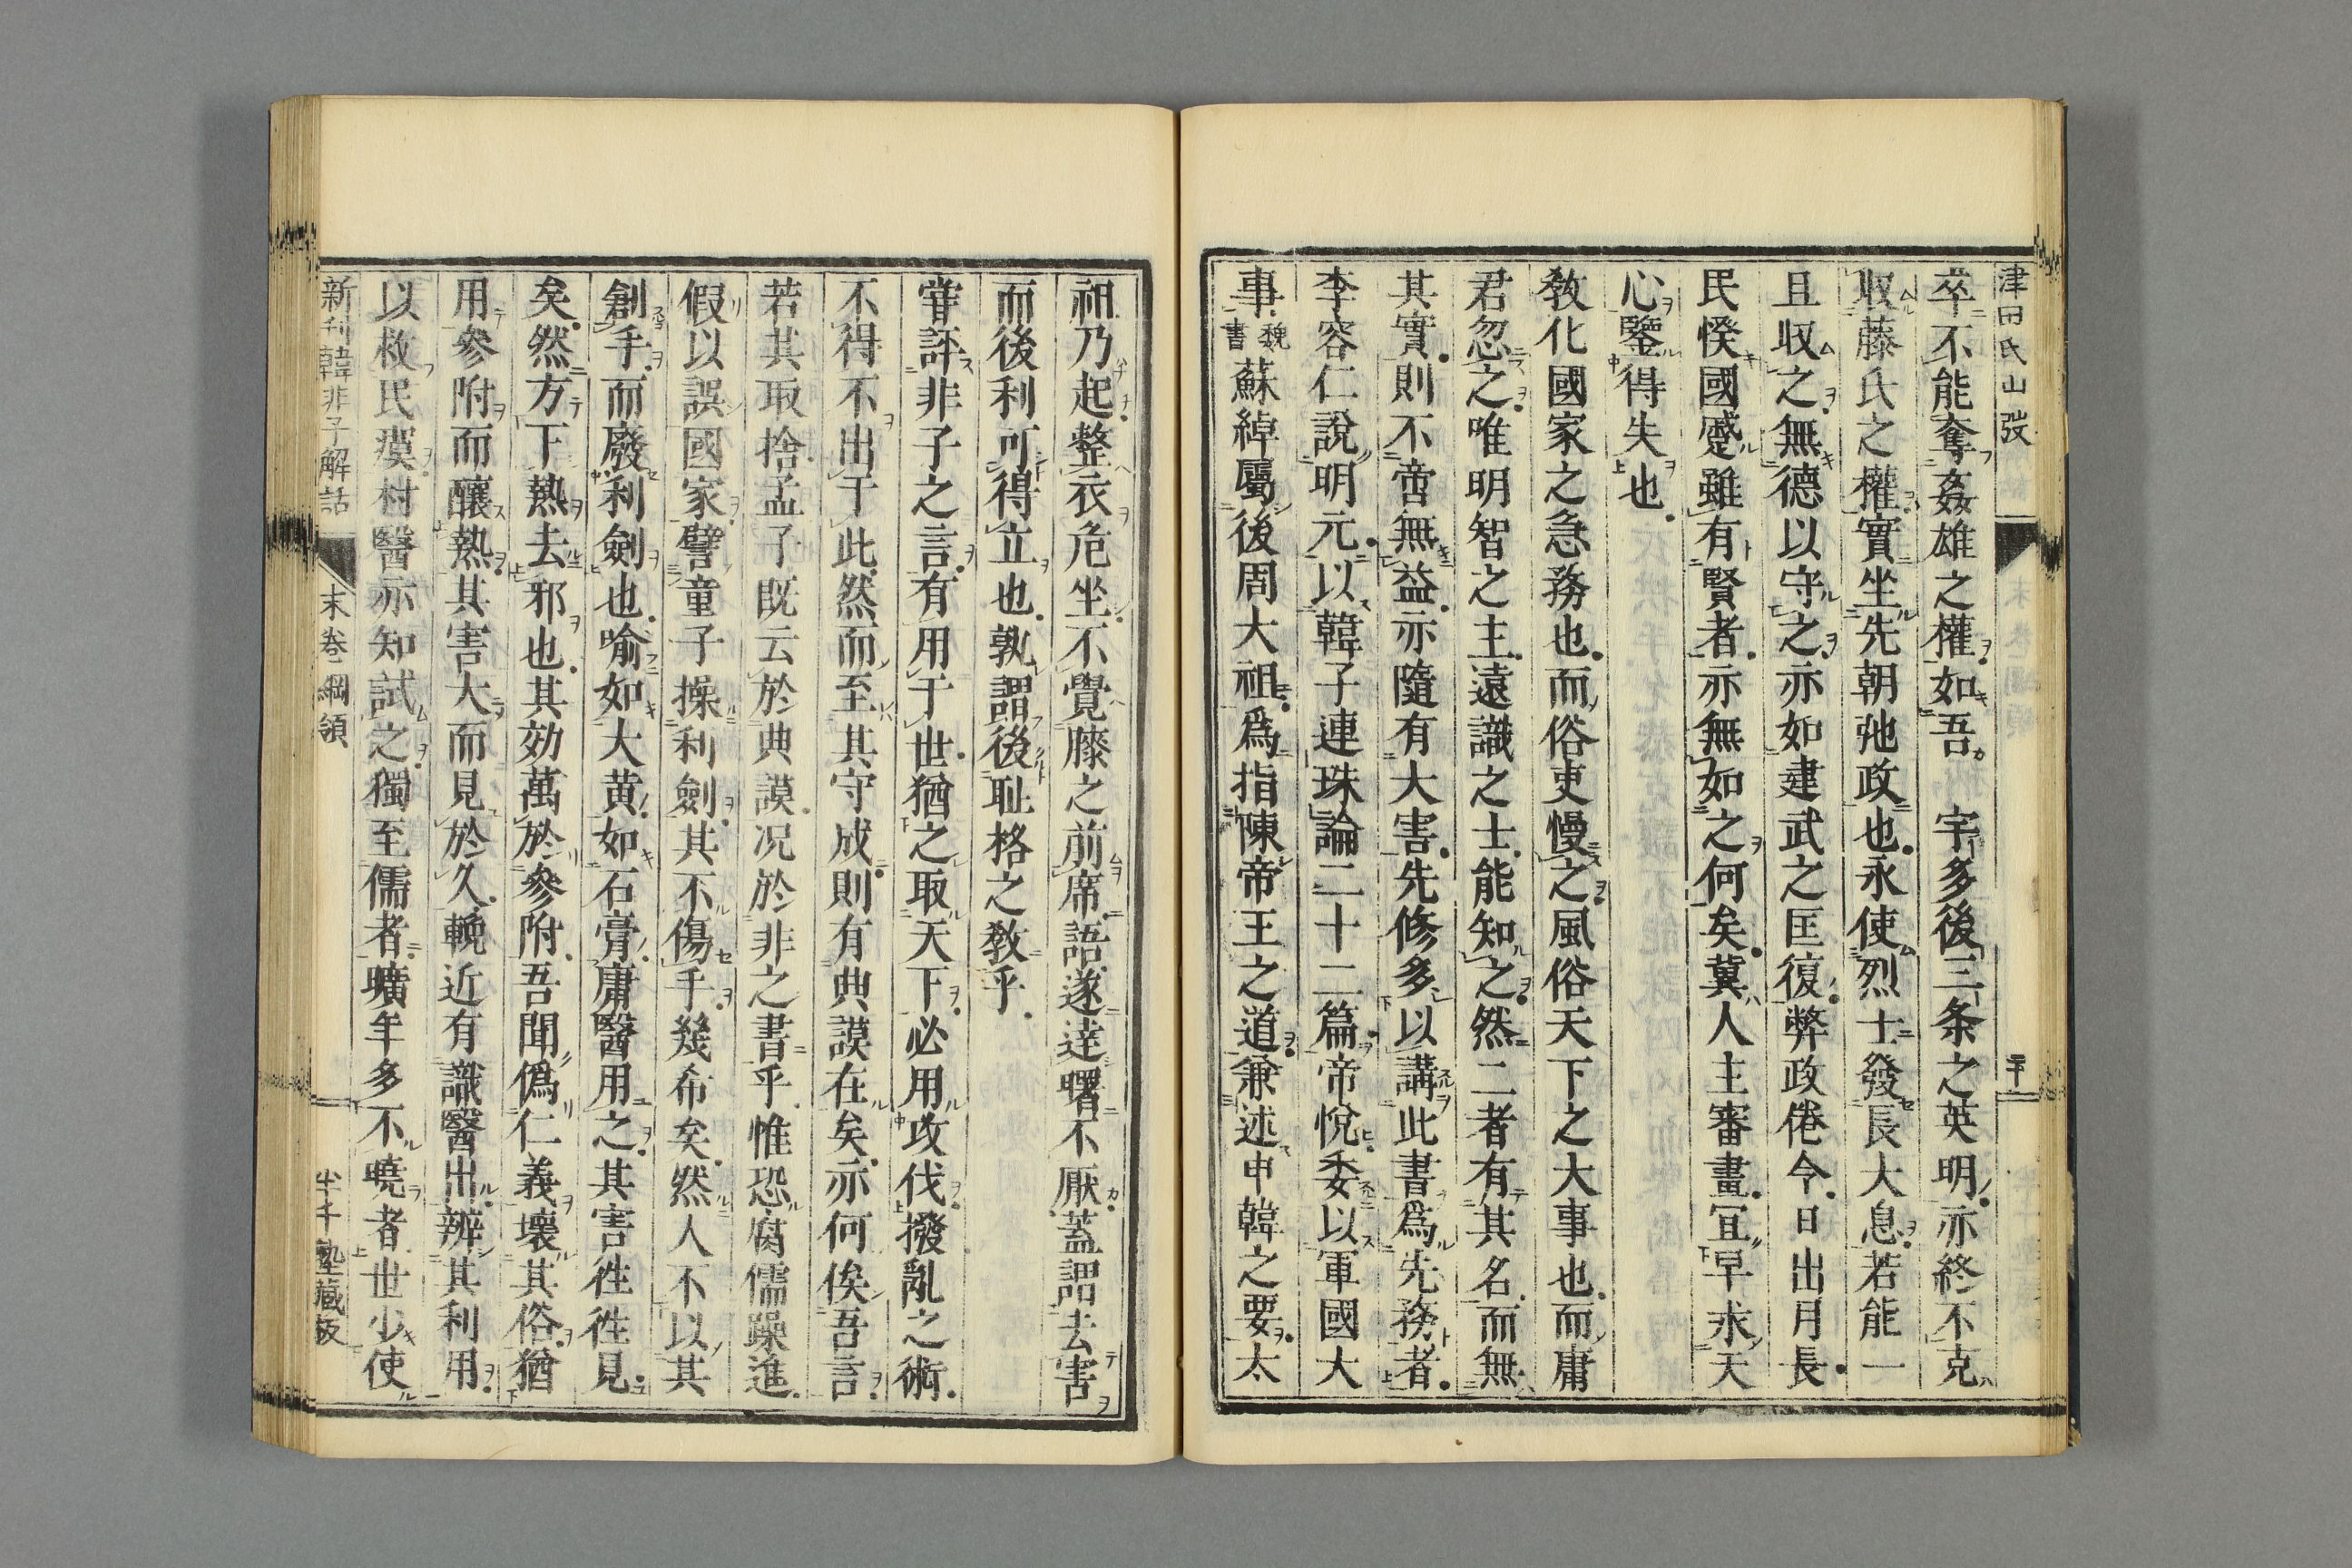 津田氏山弢
卒不能奪姦雄之權如吾　宇多後三条之英明亦終不克
収藤氏之權實坐先朝弛政也永使烈士發長大息若能一
且収之無德以守之亦如建武之匡復弊政倦今日出月長
民憏國蹙雖有賢者亦無如之何矣冀人主審畫冝早求天
心鑒得失也
敎化國家之急務也而俗吏慢之風俗天下之大事也而庸
君忽之唯明智之主遠識之士能知之然二者有其名而無
其實則不啻無益亦隨有大害先修多以講此書爲先務者
李容仁說明元以韓子連珠論二十二篇帝悅委以軍國大
事魏書蘇綽屬後周大祖爲指陳帝王之道兼述申韓之要太
祖乃起整衣危坐不覺膝之前席語遂逹曙不厭蓋謂去害
而後利可得立也孰謂後耻格之敎乎
甞評非子之言有用于世猶之取天下必用攻伐撥亂之術
不得不出于此然而至其守成則有典謨在矣亦何俟吾言
若其取捨孟子既云於典謨况於非之書乎惟恐腐儒躁進
假以誤國家譬童子操利劍其不傷手幾希矣然人不以其
創手而廢利劍也喻如大黄如石膏庸醫用之其害徃徃見
矣然方下熱去邪也其効萬於參附吾聞僞仁義壞其俗猶
用參附而釀熱其害大而見於久輓近有識醫出辨其利用
以救民瘼村醫亦知試之獨至儒者曠年多不曉者世少使
新刊韓非子解詁　末卷　綱領　半千塾藏板